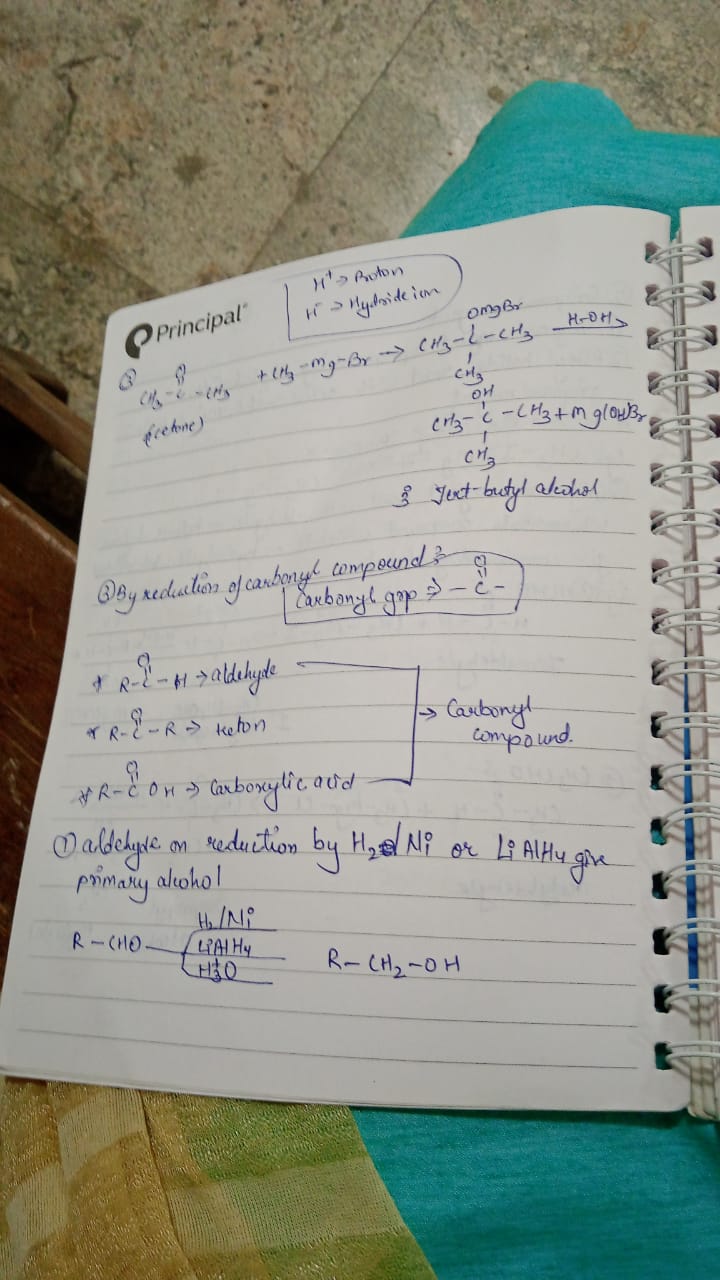 Principal
H⁺ → Proton
H⁻ → Hydride ion
③ CH₃-C(=O)-CH₃ + CH₃-Mg-Br → CH₃-C(OMgBr)(CH₃)-CH₃ H-OH→
(Acetone)
CH₃-C(OH)(CH₃)-CH₃ + Mg(OH)Br
3° Tert-butyl alcohol
③ By reduction of carbonyl compound :-
Carbonyl grop ⇒ -C(=O)-
* R-C(=O)-H → aldehyde
* R-C(=O)-R → keton
→ Carbonyl
compound.
* R-C(=O) OH → Carboxylic acid
① aldehyde on reduction by H₂/Ni or LiAlH₄ give
primary alcohol
H₂/Ni
R-CHO LiAlH₄ R-CH₂-OH
H₃⁺O